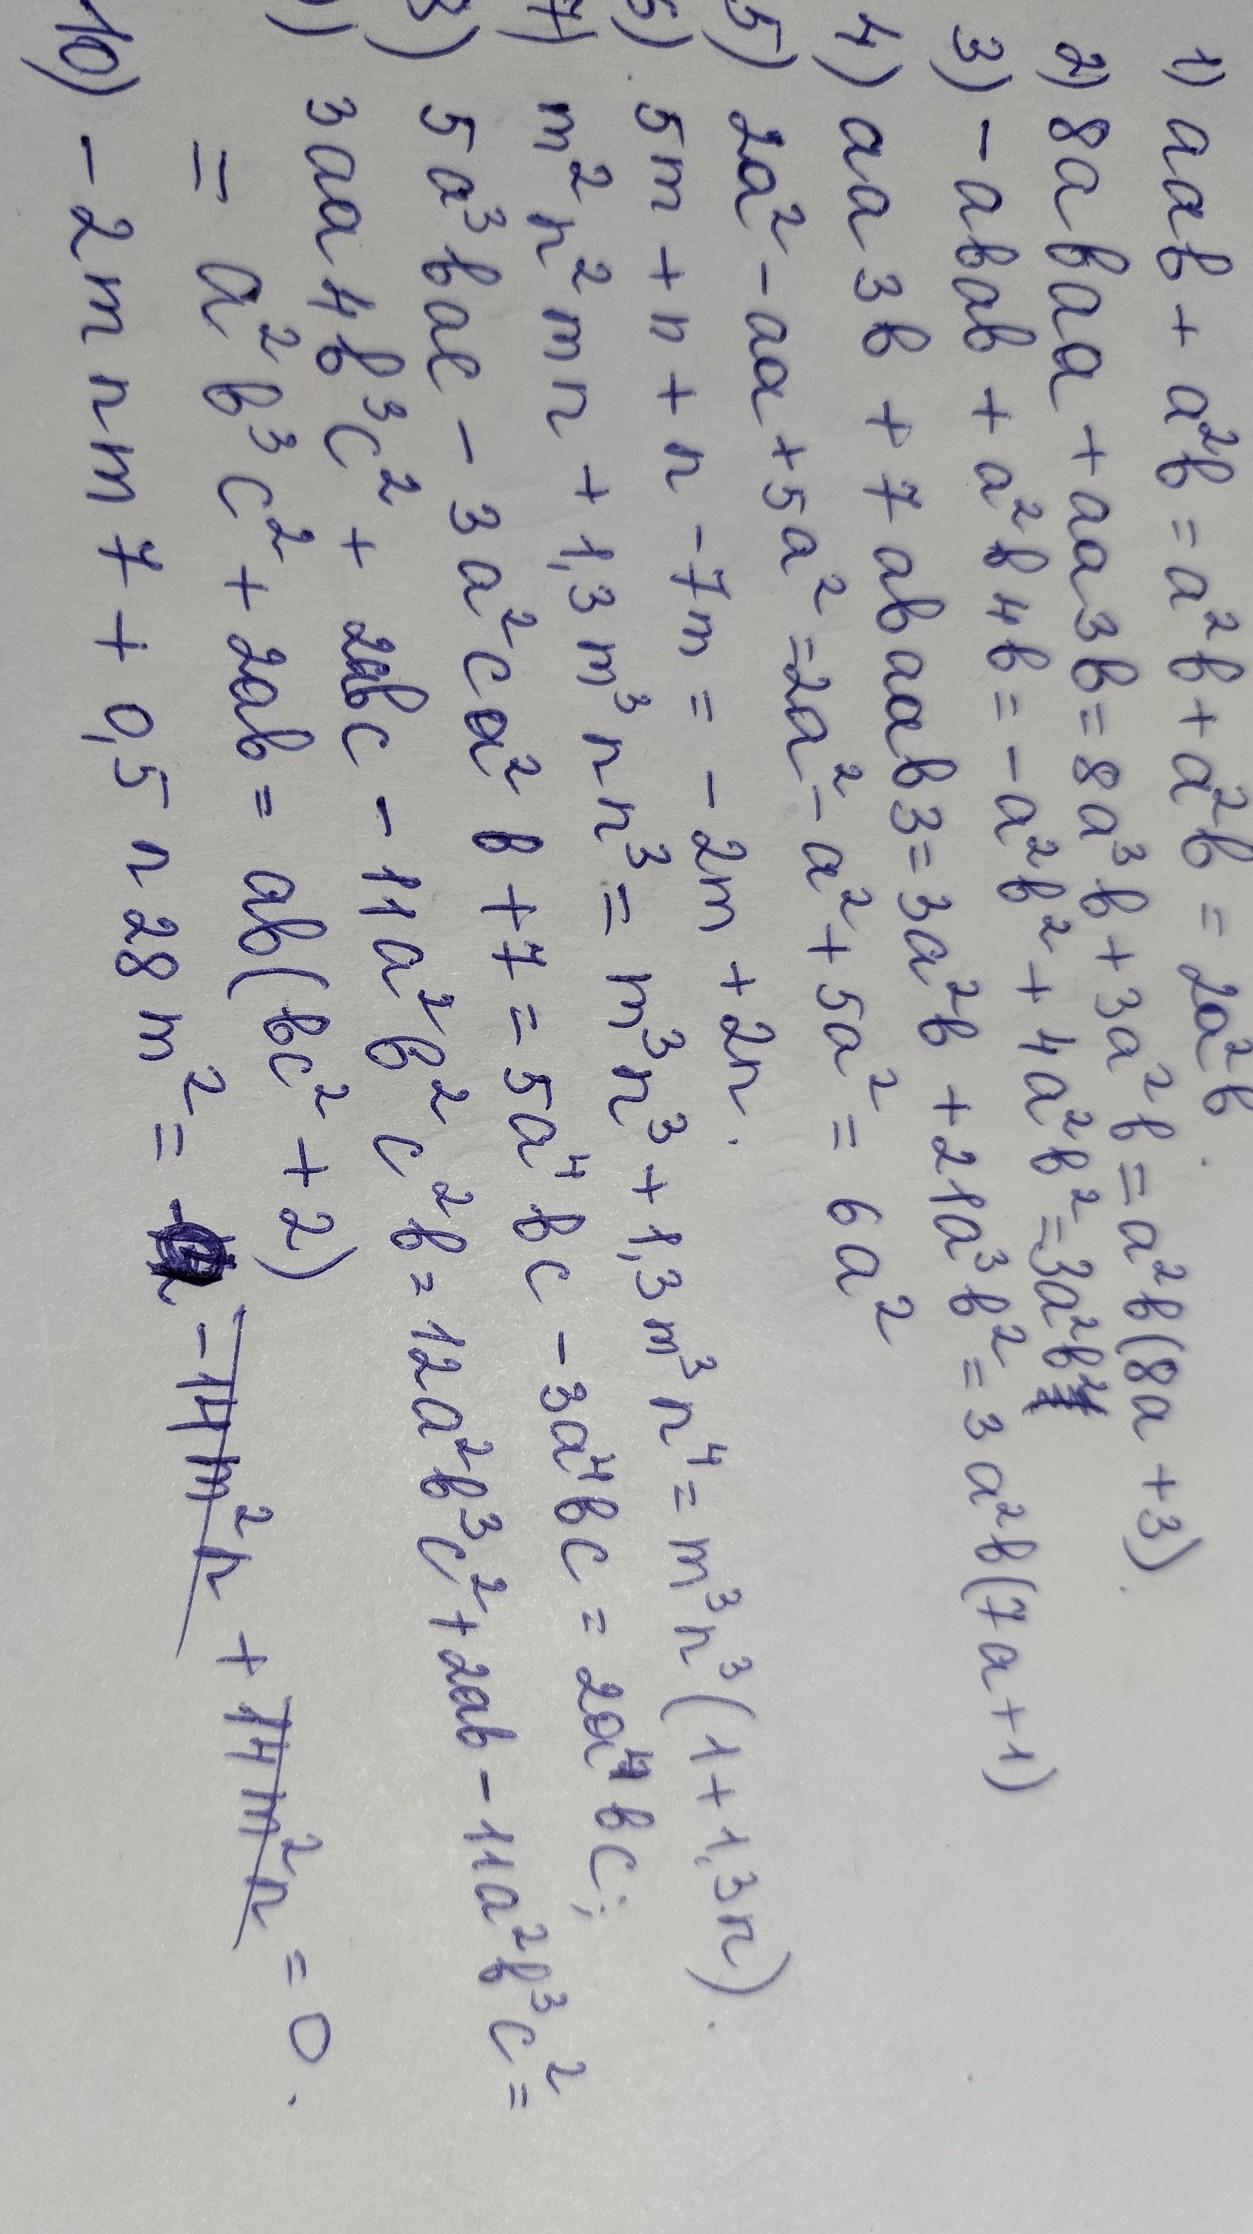 1) aab + a²b = a²b + a²b = 2a²b.
2) 8abaa + aa3b = 8a³b + 3a²b = a²b(8a + 3).
3) -abab + a²b4b = -a²b² + 4a²b² = 3a²b²
4) aa3b + 7abaab3 = 3a²b + 21a³b² = 3a²b(7a+1)
5) 2a² - aa + 5a² = 2a² - a² + 5a² = 6a²
6) 5m + n + n - 7m = -2m + 2n.
7) m²n²mn + 1,3m³nn³ = m³n³ + 1,3m³n⁴ = m³n³(1 + 1,3n).
8) 5a³bac - 3a²ca²b + 7 = 5a⁴bc - 3a⁴bc = 2a⁴bc;
) 3aa4b³c² + 2abc - 11a²b²c²b = 12a²b³c² + 2ab - 11a²b³c² =
= a²b³c² + 2ab = ab(bc² + 2)
10) -2mnm7 + 0,5n28m² = -14m²n + 14m²n = 0.